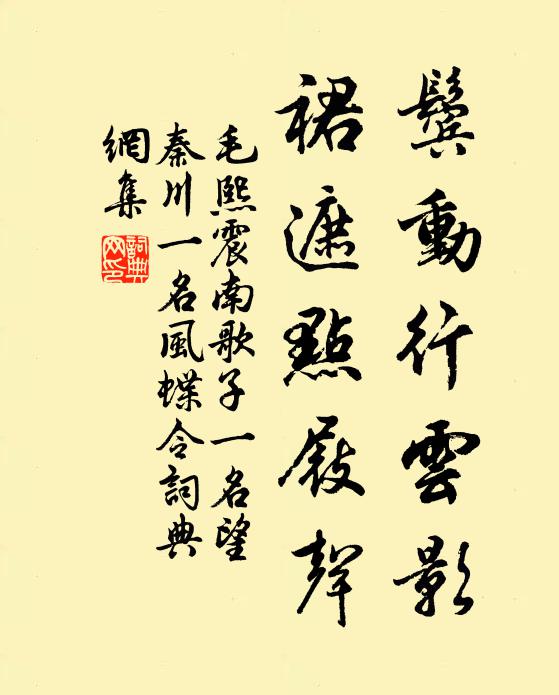 鬓動行雲影
裙遮點屐聲
毛熙震南歌子一名望
秦川一名風蝶令詞典
網集
詞典
网印